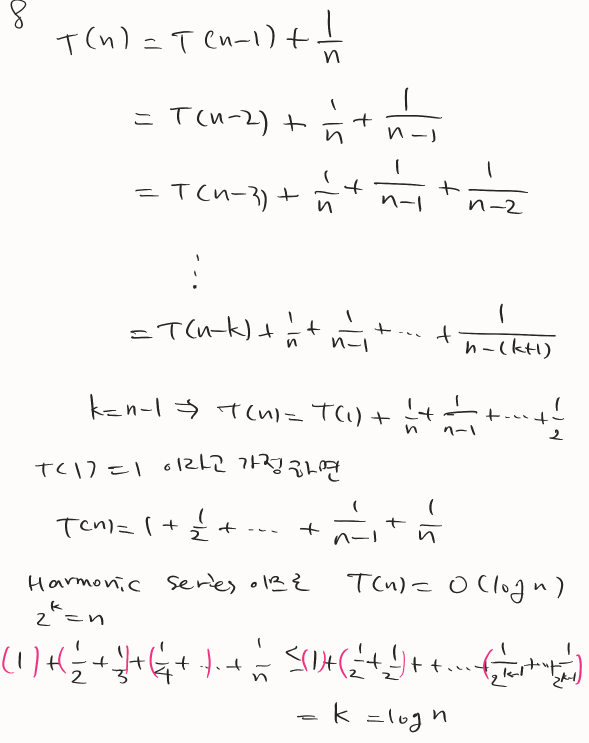 8
T(n) = T(n-1) + 1/n
= T(n-2) + 1/n + 1/(n-1)
= T(n-3) + 1/n + 1/(n-1) + 1/(n-2)
⋮
= T(n-k) + 1/n + 1/(n-1) + ... + 1/(n-(k+1))
k=n-1 ⇒ T(n) = T(1) + 1/n + 1/(n-1) + ... + 1/2
T(1) = 1 이라고 가정하면
T(n) = 1 + 1/2 + ... + 1/(n-1) + 1/n
Harmonic series 이므로 T(n) = O(log n)
2^k = n
(1) + (1/2 + 1/3) + (1/4 + ..) .. + 1/n ≤ (1) + (1/2 + 1/2) + + ... + (1/2^(k-1) + ... + 1/2^(k-1))
= k = log n